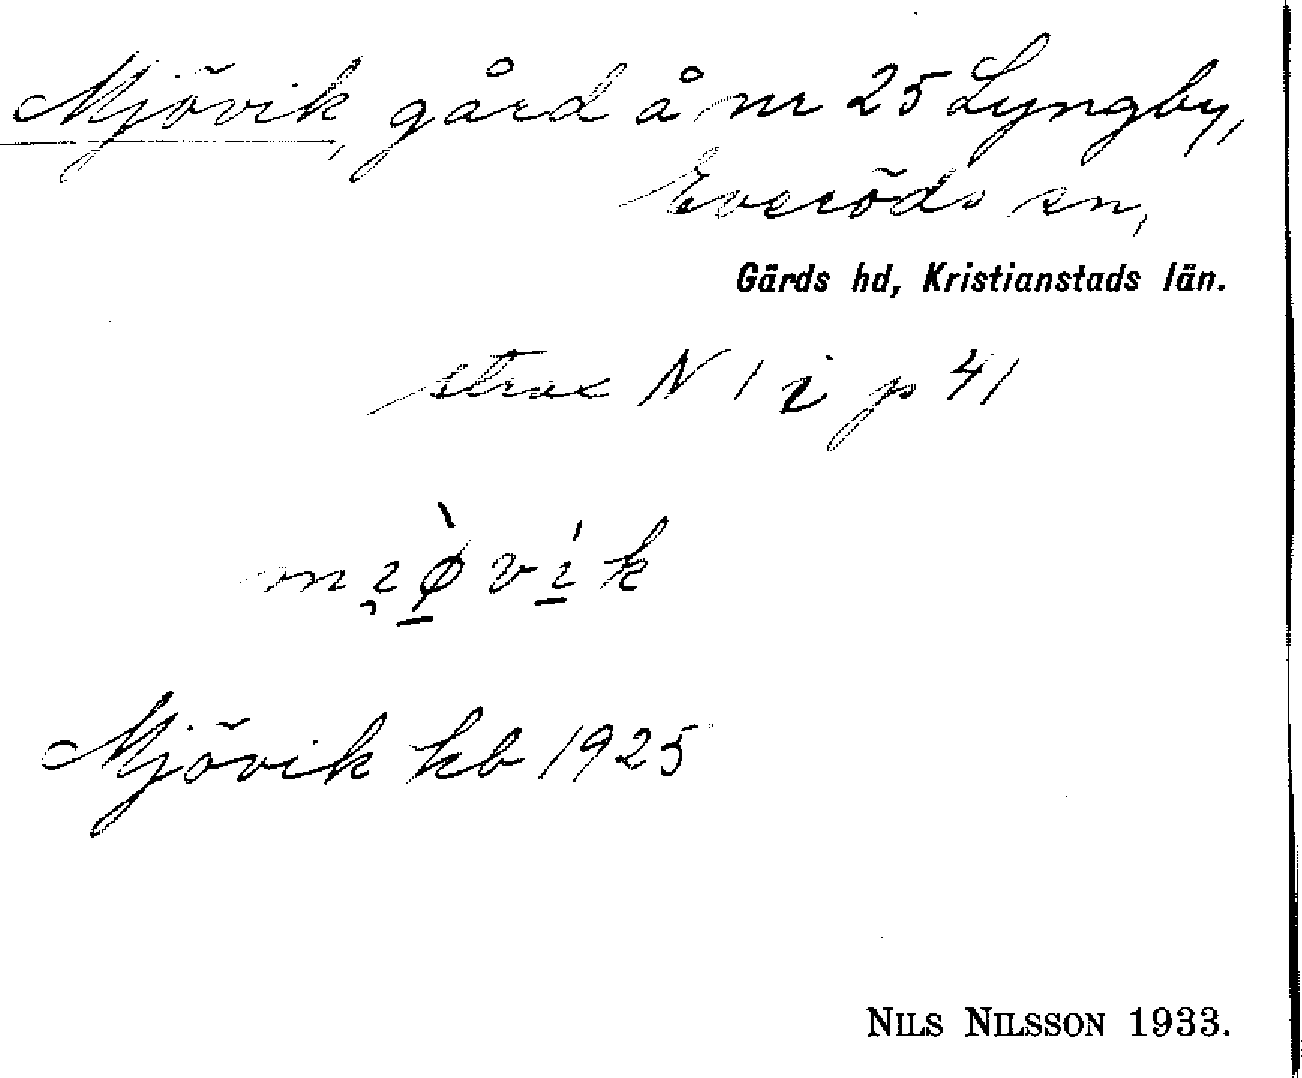 Mjövik, gård å nr 25 Lyngby,
Everöds sn,
Gärds hd, Kristianstads län.
strax N 1 i p 41
mi̯ø̠̀ví̠k
Mjövik kb 1925
NILS NILSSON 1933.